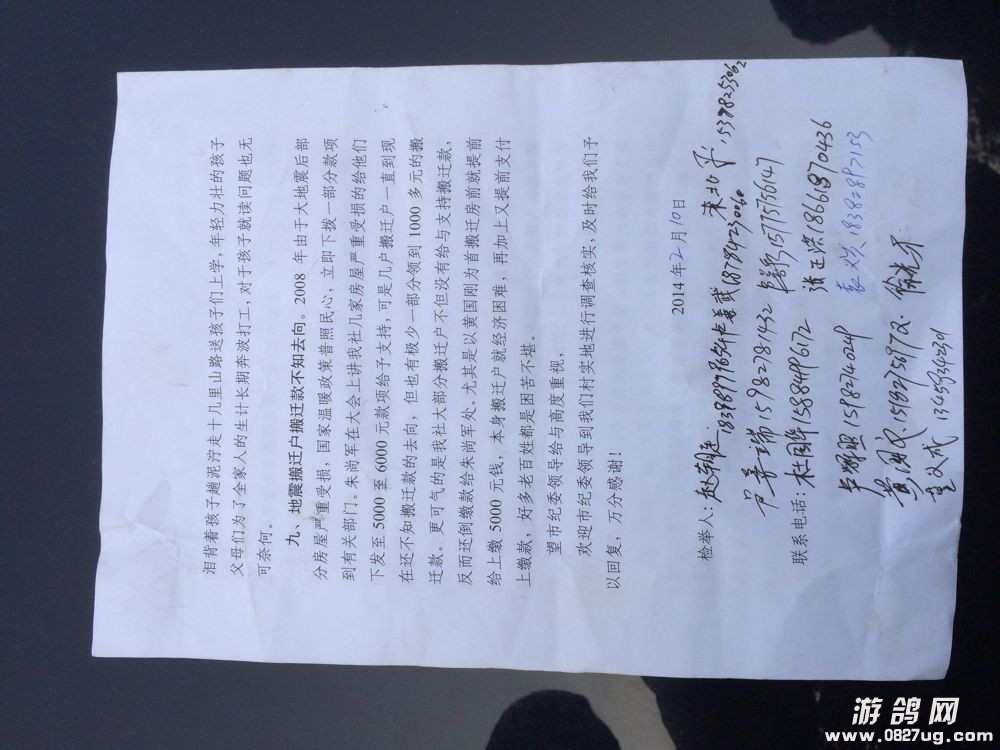 泪背着孩子趟泥泞走十几里山路送孩子们上学，年轻力壮的孩子
父母们为了全家人的生计长期奔波打工，对于孩子就读问题也无
可奈何。
九、地震搬迁户搬迁款不知去向。2008 年由于大地震后部
分房屋严重受损，国家温暖政策普照民心，立即下拨一部分款项
到有关部门。朱尚军在大会上讲我社几家房屋严重受损的给他们
下发至 5000 至 6000 元款项给予支持，可是几户搬迁户一直到现
在还不知搬迁款的去向，但也有极少一部分领到 1000 多元的搬
迁款。更可气的是我社大部分搬迁户不但没有给与支持搬迁款，
反而还倒缴款给朱尚军处、尤其是以黄国刚为首搬迁房前就提前
给上缴 5000 元钱，本身搬迁户就经济困难，再加上又提前支付
上缴款，好多老百姓都是困苦不堪。
望市纪委领导给与高度重视，
欢迎市纪委领导到我们村实地进行调查核实，及时给我们予
以回复，万分感谢！
2014 年 2 月 10 日
检举人：
15982781432
联系电话：杜国华 15884891672
18784230060
15775736147
18661870436
15378253062
游鸽网
www.0827ug.com